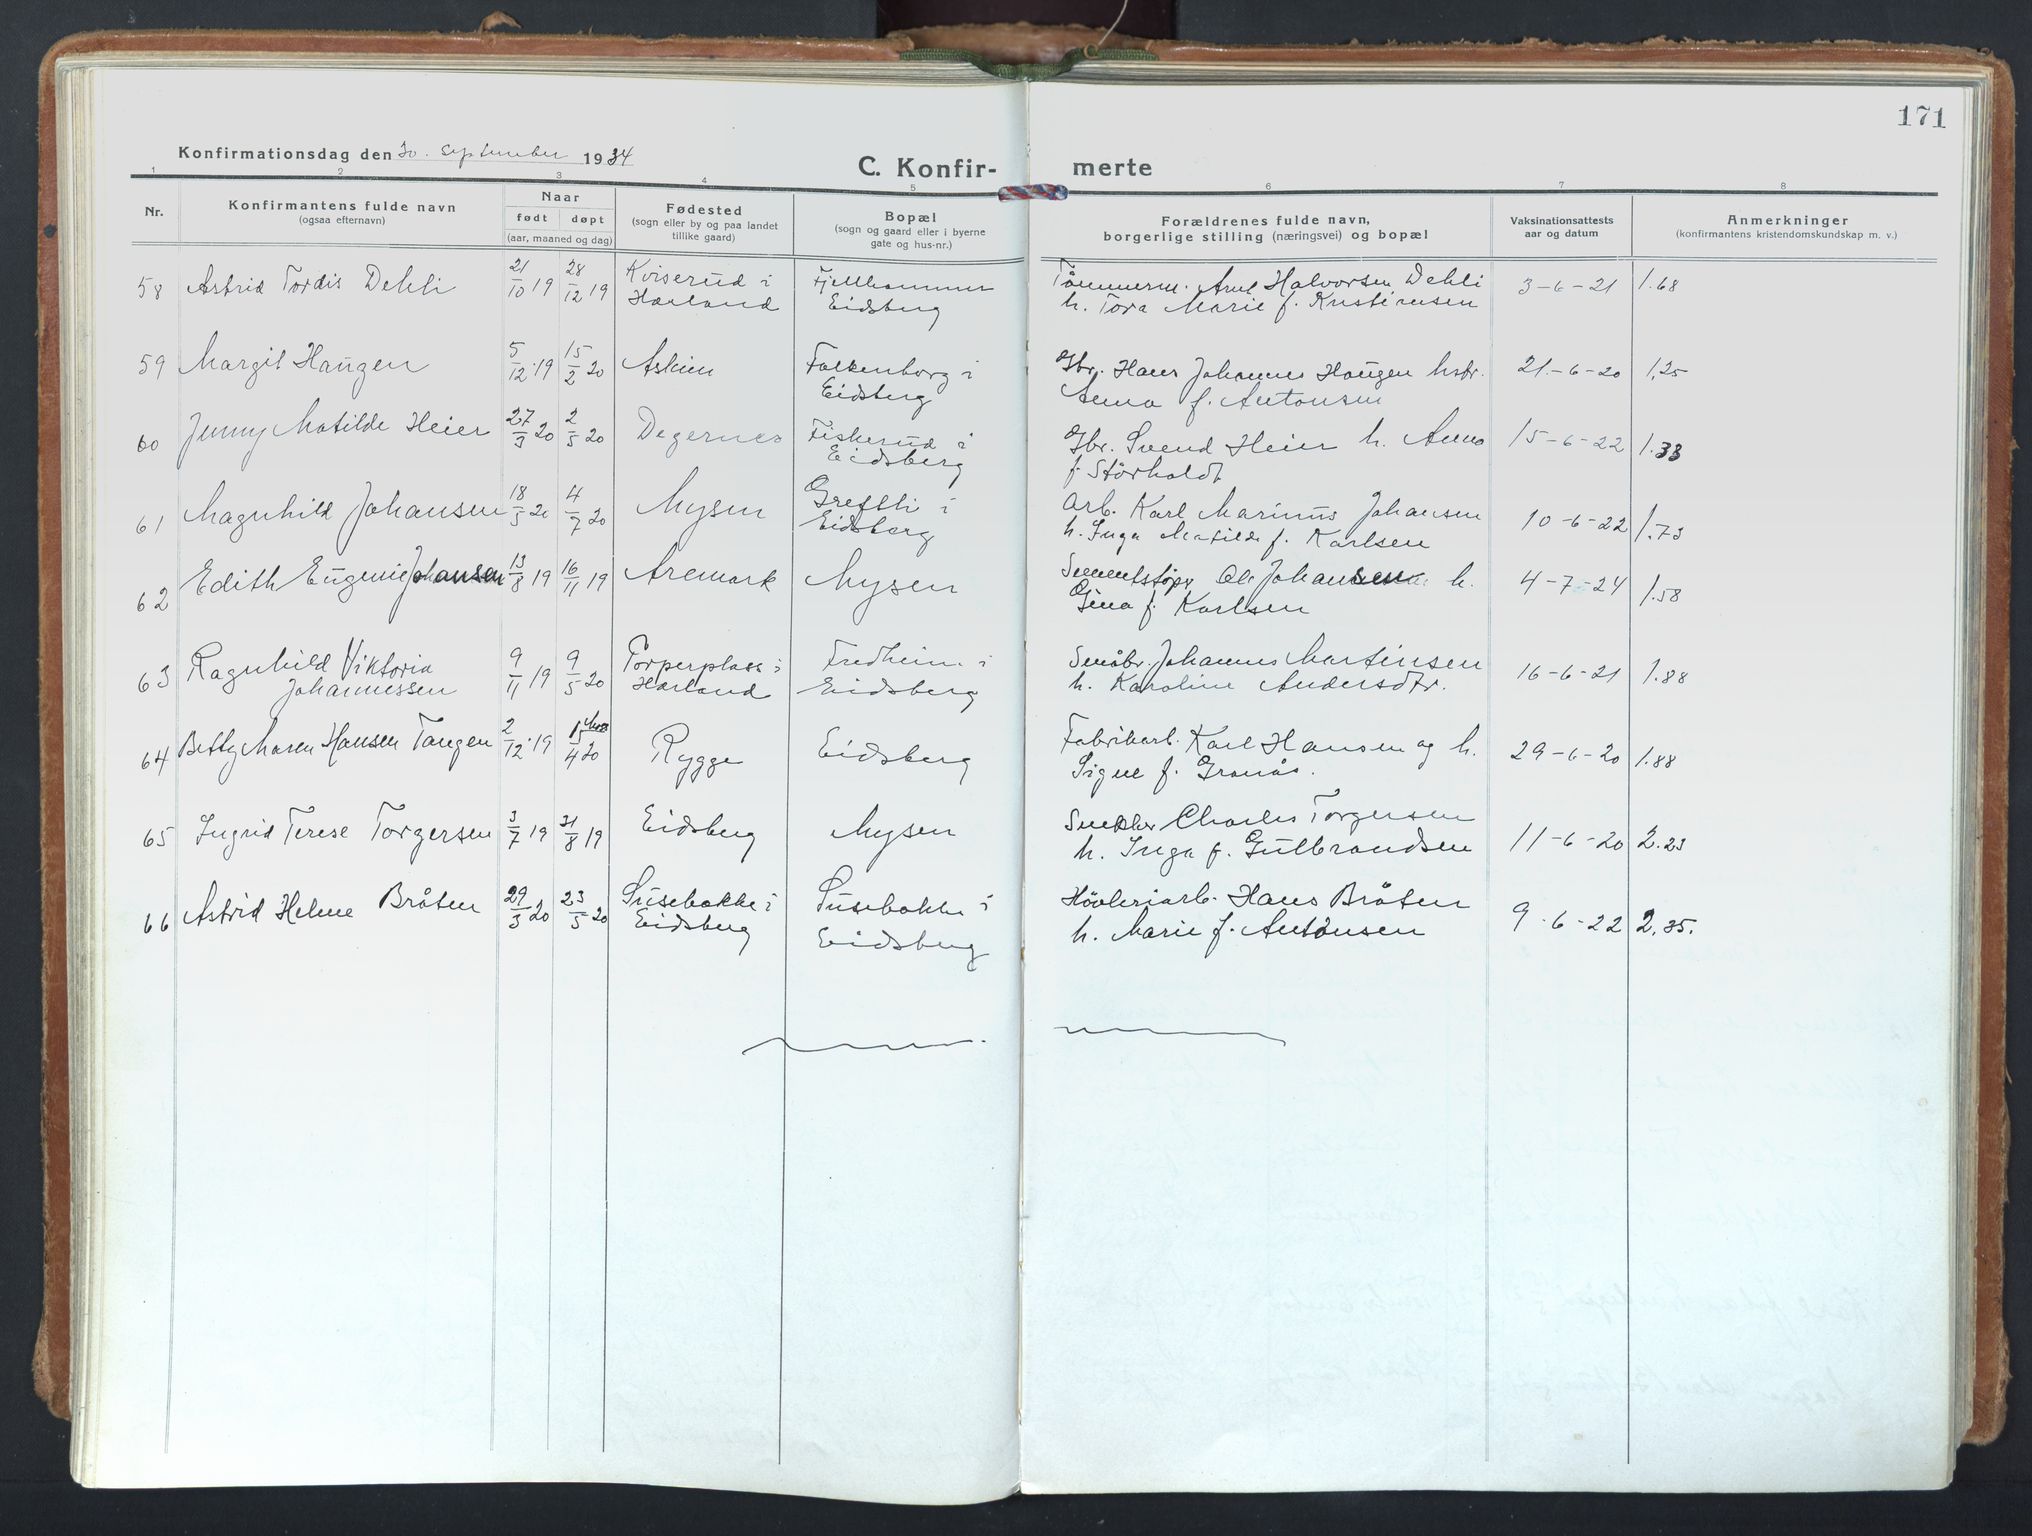 171
Konfirmationsdag den 30. september 1934
C. Konfir- merte
1 2 3 4 5 6 7 8
Nr.
Konfirmantens fulde navn
(ogsaa efternavn)
Naar
født døpt
(aar, maaned og dag)
Fødested
(sogn eller by og paa landet
tillike gaard)
Bopæl
(sogn og gaard eller i byerne
gate og hus-nr.)
Forældrenes fulde navn,
borgerlige stilling (næringsvei) og bopæl
Vaksinationsattests
aar og datum
Anmerkninger
(konfirmantens kristendomskundskap m. v.)
58 Astrid Tordis Dehli 21/10 19 28/12 19 Kviserud i Fjellhammer Tömmerm. Halvorsen Dehli 3-6-21 1.68
Hærland Eidsberg h. Tora Marie f. Kristiansen
59 Margit Haugen 5/12.19 15/2 20 Askim Falkenborg i Gbr. Hans Johannes Haugen hstr. 21.-6-20 1,25
Eidsberg Anna f. Antonsen
60 Jenny Matilde Heier 27/3 20 2/5 20 Degernes Fiskerud i Gbr. Svend Heier h. Anna 15-6-22 1.33
Eidsberg f. Störholdt
61 Magnhild Johansen 18/5 20 4/7 20 Mysen Grefsli i Arb. Karl Marinus Johansen 10-6-22 1.73
Eidsberg h. Inga Matilde f. Karlsen
62 Edith Eugenie Johansen 13/8 19 16/11 19 Aremark Mysen Sementstöper Ole Johansen h. 4-7-24 1.58
Gina f. Karlsen
63 Ragnhild Viktoria 9/11 19 9/5 20 Torperplass i Fredheim i Småbr. Johannes Martinsen 16-6-21 1.88
Johannessen Hærland Eidsberg h. Karoline Andersdtr.
64 Betty Maren Hansen Tangen 2/12.19 15/4 20 Rygge Eidsberg Fabrikarb. Karl Hansen og h. 29-6-20 1.88
Signe f. Granås.
65 Ingrid Terese Torgersen 3/7 19 31/8 19 Eidsberg Mysen Snekker Charles Torgersen 11-6-20 2.23
h. Inga f. Gulbrandsen
66 Astrid Helene Bråten 29/3 20 23/5 20 Susebakke i Susebakke i Hövleriarb. Hans Bråten 9-6-22 2.35.
Eidsberg Eidsberg h. Marie f. Antonsen